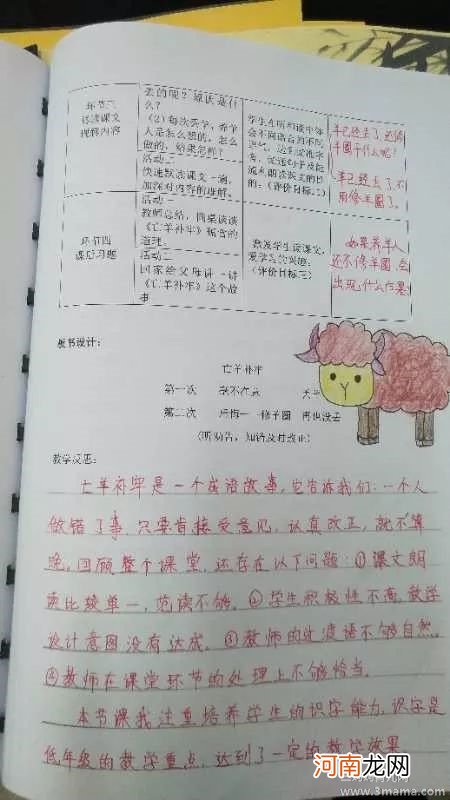 去的呢？原因是什
么？
环节三
（2）每次丢羊，养羊
人是怎么想的，怎么
做的，结果怎样？
活动二
快速默读课文一遍，
加深对内容的理解。
羊已经丢了，还修
羊圈干什么呢？
羊已经丢了，不
用修羊圈了。
环节四
课后习题
活动一
教师总结，同桌谈谈
《亡羊补牢》蕴含的
道理。
活动二
回家给父母讲一讲
《亡羊补牢》这个故
事
激发学生读课文，
（评价目标三）
如果养羊人
还不修羊圈，会
出现什么后果
板书设计：
亡羊补牢
第一次 毫不在意 丢羊
第二次 后悔 修羊圈 再也没丢
（听劝告，知错及时改正）
教学反思：
亡羊补牢是一个成语故事，它告诉我们：一个人
做错了事，只要肯接受意见，认真改正，就不算
晚。回顾整个课堂，还存在以下问题：①课文朗
读比较单一，范读不够。②学生积极性不高，教学
设计意图没有达成。③教师的过渡语不够自然。
④教师在课堂环节的处理上不够恰当。
本节课我注重培养学生的识字能力，识字是
低年级的教学重点，达到了一定的教学效果
河南龙网
www.3mama.com